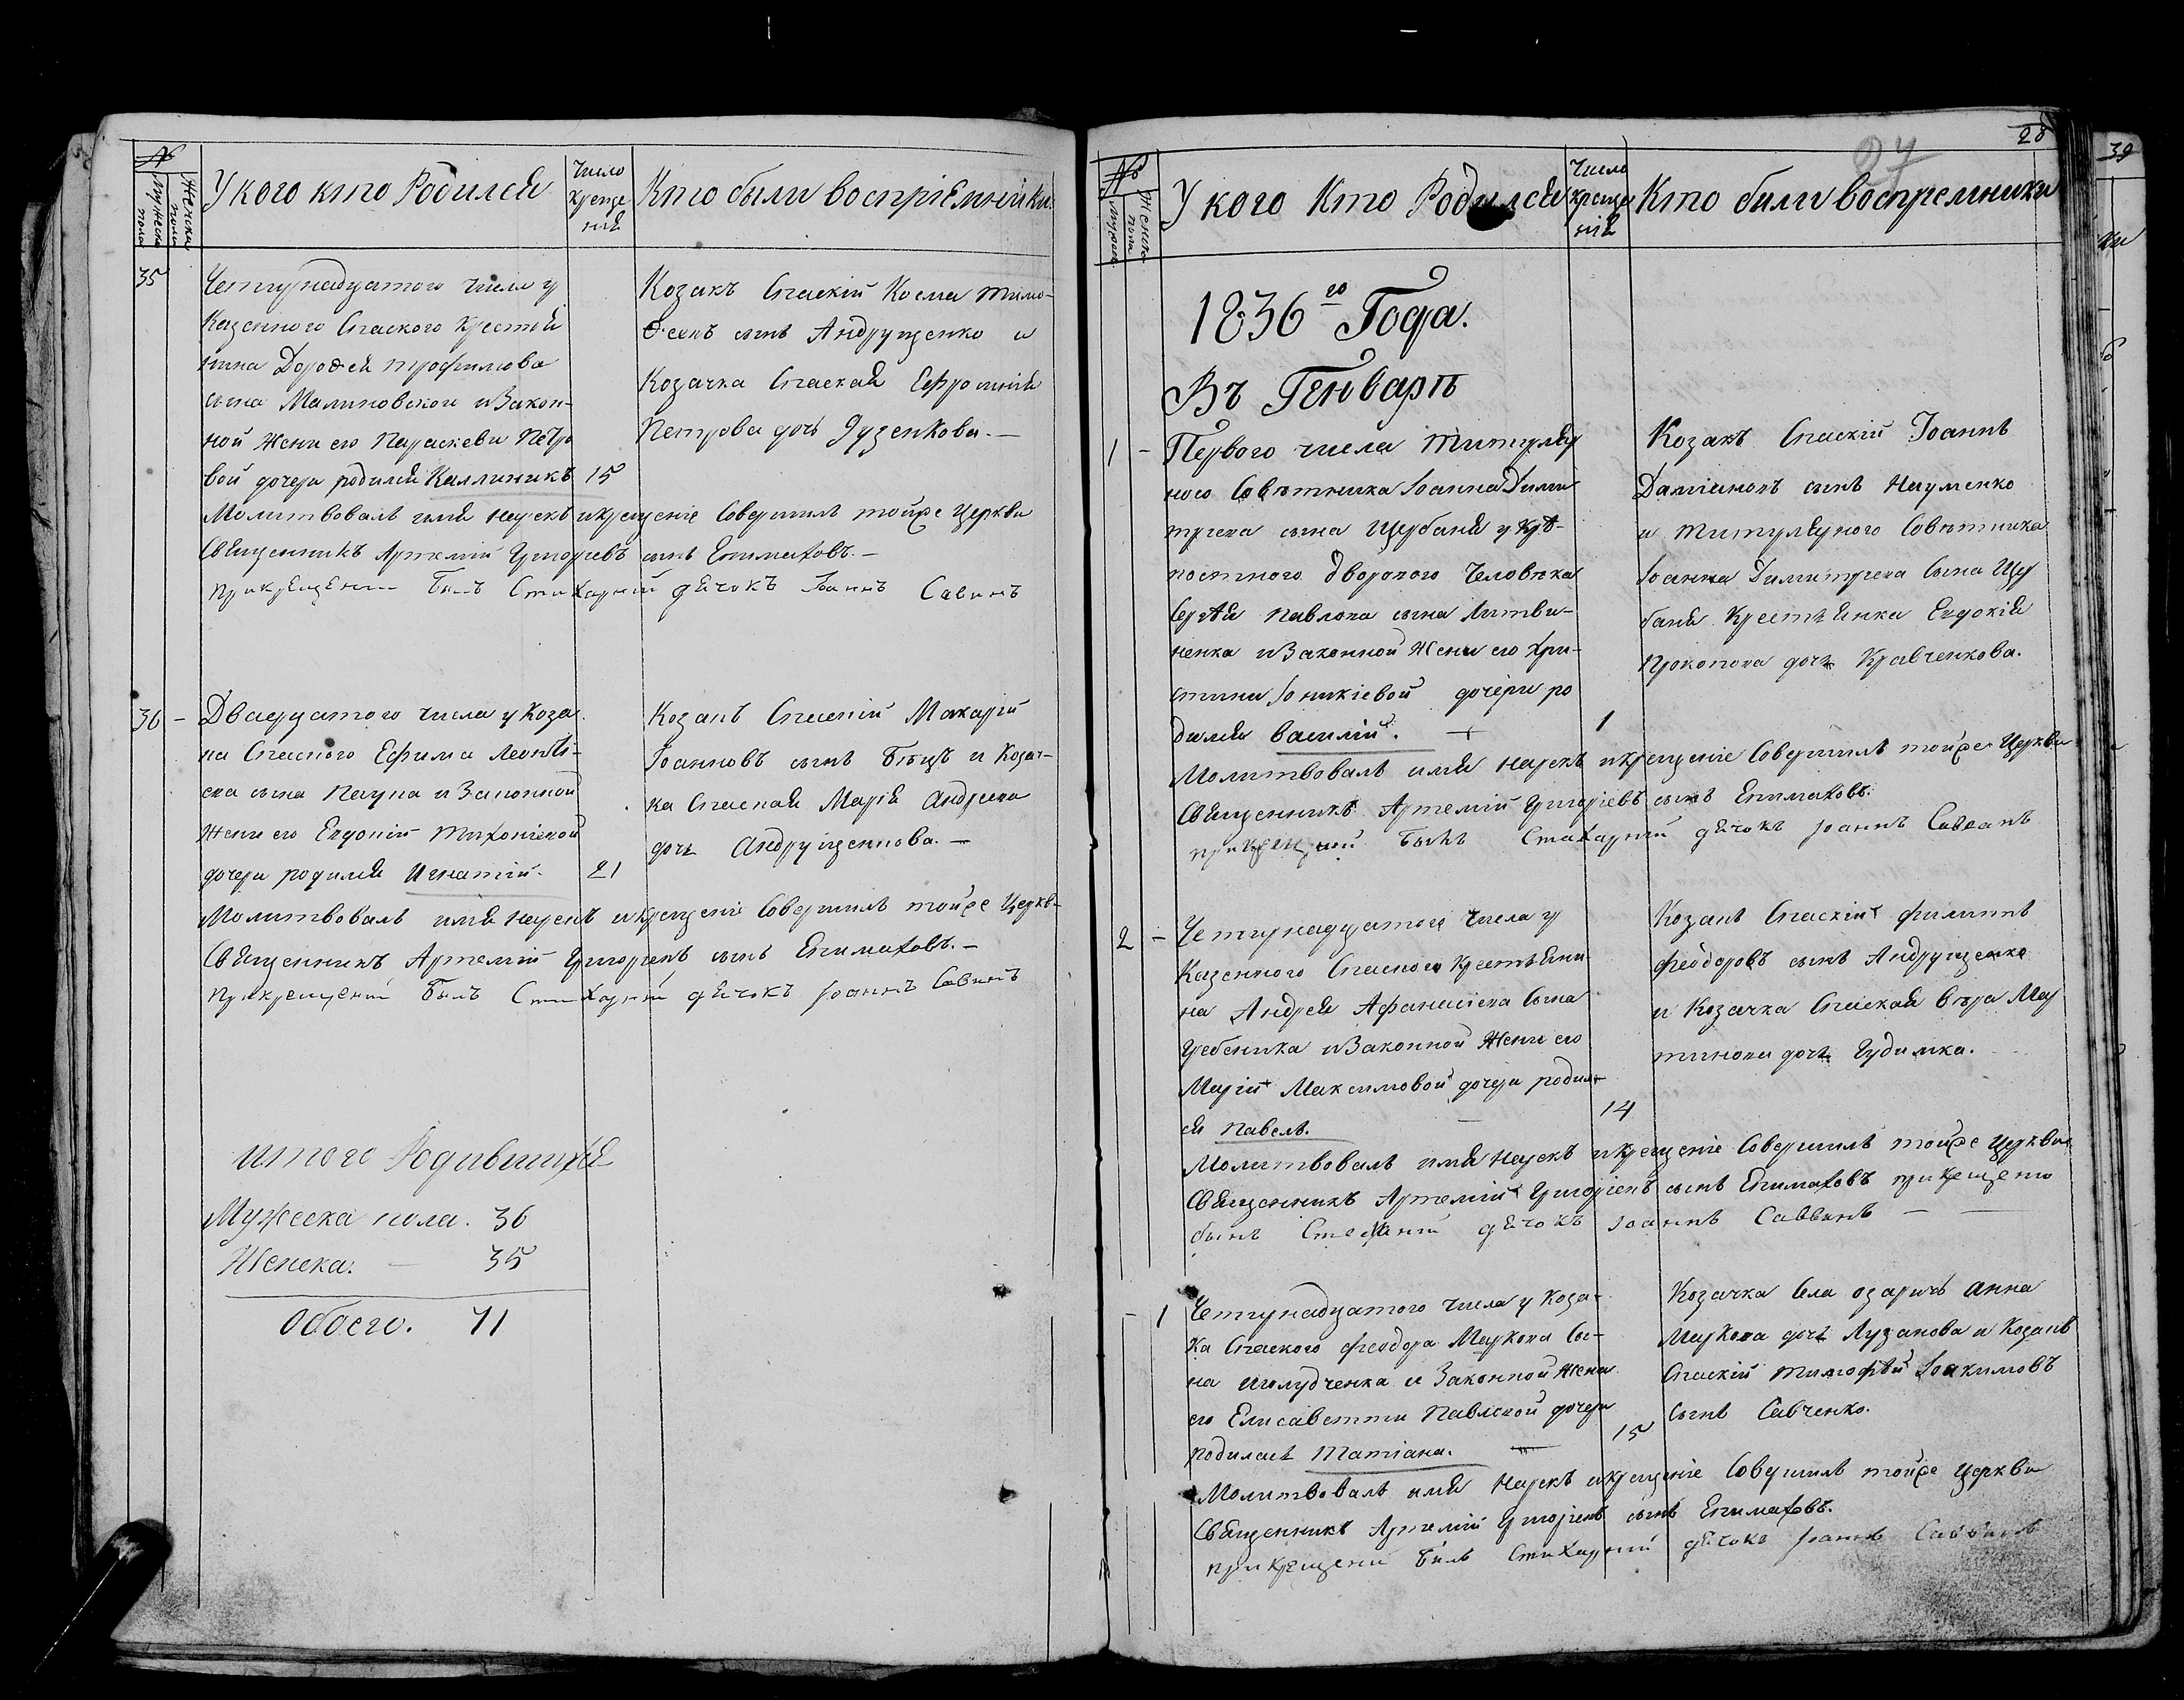 №
Мужеска пола
Женска пола
У кого кто Родился
Число креще нія
Кто были воспріемники
35
Четирнадцатого числа у
Казенного Спаского крестья
нина Дорофея трофимова
сына Малиновского и Закон-
ной жены его Параскеви Петро
вой дочери родился Каллиникъ 15
Козакъ Спаскій Косма тимо-
феевъ сынъ Андрущенко и
Козачка Спаская Ефросинія
Петрова дочь Гузенкова.—
Молитвовалъ имя нарекъ и крещеніе Совершилъ тойже Церкви
Священникъ Артемій Григоріевъ сынъ Епимаховъ.—
при крещеніи былъ Стихарній дячокъ Іоаннъ Савинъ
36 —
Двадцатого числа у Коза
ка Спаского Ефима Леонтіе-
ева сына Пацука и Законной
жени его Евдокіи Тихоніевой
дочери родился Игнатій. 21
Козакъ Спаскій Макарій
Іоанновъ сынъ Бѣцъ и Козач-
ка Спаская Марія Андреева
дочь Андрущенкова.—
Молитвовалъ имя нарекъ и крещеніе Совершилъ тойже Церкви
Священникъ Артемій Григоріевъ сынъ Епимаховъ.—
При крещеніи былъ Стихарній дячокъ Іоаннъ Савинъ
итого Родившихся
Мужеска пола. 36
Женска. — 35
Обоего. 71
28
27
39
№
Мужеска
Женска пола
У кого Кто Родился
Число креще нія
Кто были воспремники
1836го Года.
Въ Генварѣ
1 —
Первого числа титуляр
ного Совѣтника Іоанна Дими
тріева сына Щербаня у крѣ-
постного дворового Человѣка
Сергѣя Павлова сына Литви-
ненка и Законной жени его Хри-
стини Іоникіевой дочери ро
дился василій. — 1
Козакъ Спаскій Іоаннъ
Даміановъ сынъ Науменко
и титулярного Совѣтника
Іоанна Димитріева Сына Щер
баня крестьянка Евдокія
Прокопова дочь Кравченкова.
Молитвовалъ имя нарекъ и крещеніе Совершилъ тойже Церкви
Священникъ Артемій Григоріевъ сынъ Епимаховъ.
при крещеніи былъ Стихарній дячокъ Іоаннъ Саввинъ
2 —
Четирнадцатого числа у
Казенного Спаского крестьяни-
на Андрея Афанасіева Сына
Гребеника и Законной жени его
Маріи Максимовой дочери родил-
ся Павелъ. — 14
Козакъ Спаскій филиппъ
феодоровъ сынъ Андрущенко
и Козачка Спаская вѣра Мар
тинова дочь Гудимка.
Молитвовалъ имя нарекъ и крещеніе Совершилъ тойже Церкви
Священникъ Артемій Григоріевъ сынъ Епимаховъ при крещении
былъ Стихарній дячокъ Іоаннъ Саввинъ —
— 1
Четирнадцатого числа у коза-
ка Спаского феодора Маркова Сы-
на Шолудченка и Законной жени
его Елисаветти Павловой дочери
родилась Татіана. — 15
Козачка Села озаричъ анна
Маркова дочь Лузанова и Козакъ
Спаскій тимофѣй Іоакимовъ
сынъ Савченко.
Молитвовалъ имя Нарекъ и крещеніе Совершилъ тойже церкви
Священникъ Артемій Григоріевъ сынъ Епимаховъ.
при крещеніи былъ Стихарній дячокъ Іоаннъ Саввинъ